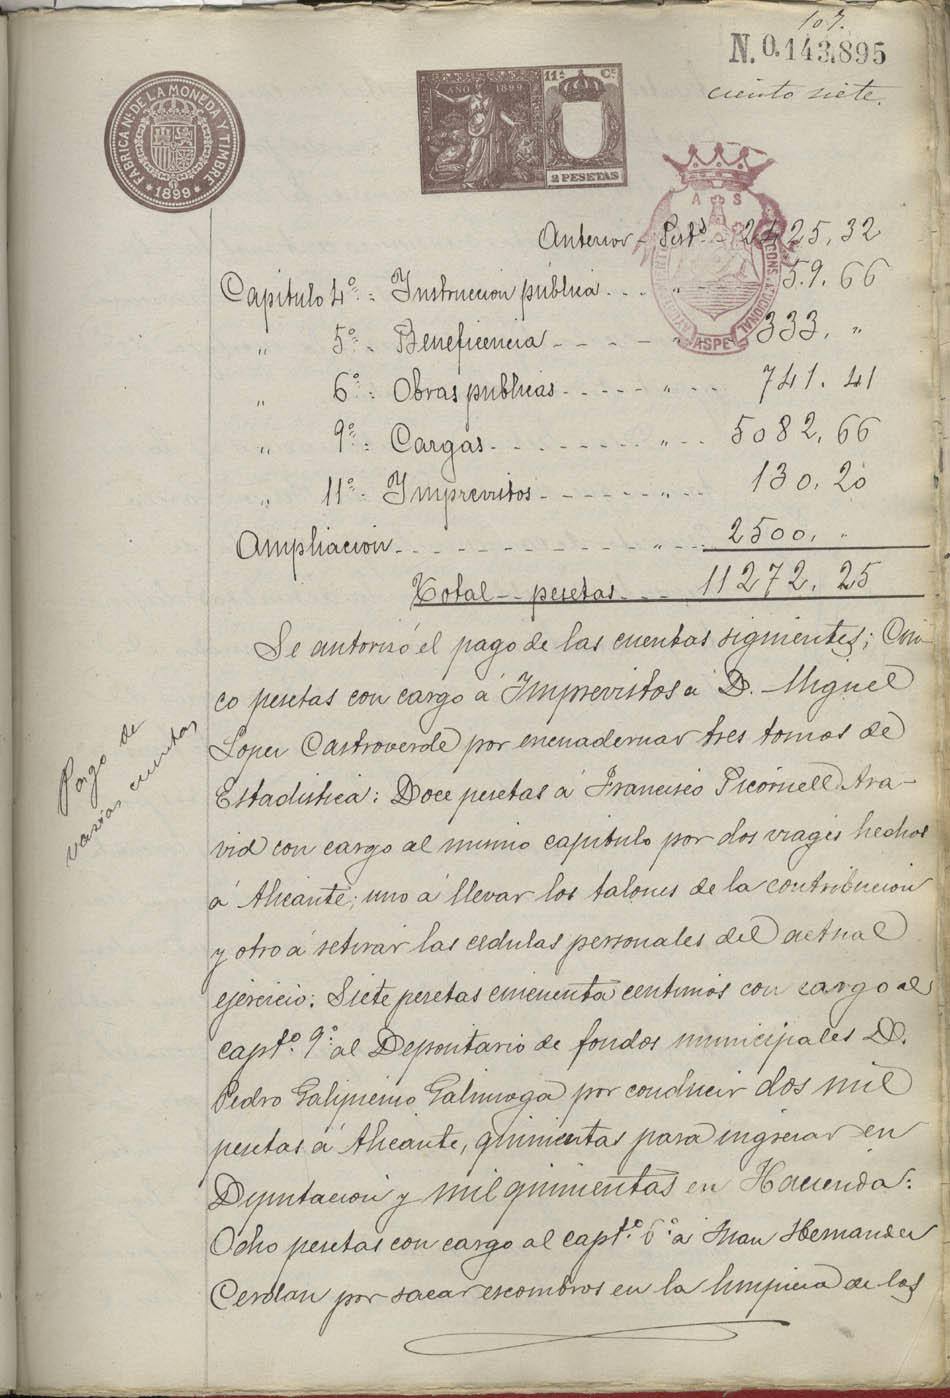 107.
N. 0.143.895
ciento siete.
FABRICA Nal DE LA MONEDA Y TIMBRE
* 1899 *
AÑO 1899
11ª Cª
2 PESETAS
A S
CONSTITUCIONAL
ASPE
Anterior - Pestas 2425,32
Capítulo 4º = Instruccion pública . . . „ 59.66
„ 5º - Beneficencia - - - - „ 333, „
„ 6º = Obras públicas - - - - „ - - 741.41
„ 9º = Cargas - - - - - - - „ - - 5082,66
„ 11º = Imprevistos - - - - - „ - - 130.20
Ampliacion - - - - - - - - - - „ - - 2500, „
Total - - pesetas - - - 11272,25
Se autorizó el pago de las cuentas siguientes; Cin-
co pesetas con cargo á Imprevistos á D. Miguel
Lopez Castroverde por encuadernar tres tomos de
Estadistica: Doce pesetas á Francisco Picornell Ara-
vid con cargo al mismo capitulo por dos viages hechos
á Alicante; uno á llevar los talones de la contribucion
y otro á retirar las cedulas personales del actual
ejercicio: Siete pesetas cincuenta centimos con cargo al
captº 9º al Depositario de fondos municipales D.
Pedro Galipienso Galinsoga por conducir dos mil
pesetas á Alicante, quinientas para ingresar en
Diputacion y mil quinientas en Hacienda:
Ocho pesetas con cargo al captº 6º á Juan Hernandez
Cerdan por sacar escombros en la limpieza de las
Pago de
varias cuentas